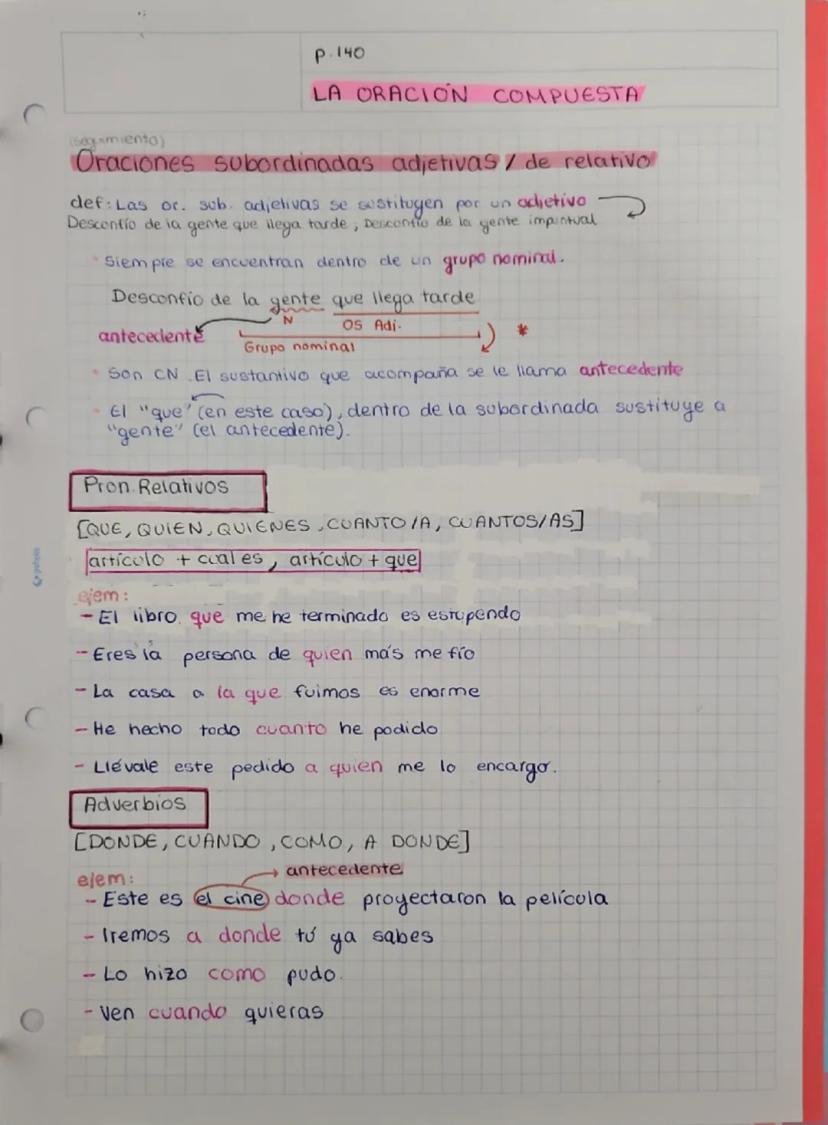 p.140
LA ORACIÓN COMPUESTA
Oraciones subordinadas adjetivas / de relativo
def: Las or. sub. adjetivas se sustituyen por un adjetivo
Desconfío de la gente que llega tarde, Desconfío de la gente impuntual
Siempre se encuentran dentro de un grupo nominal.
Desconfío de la gente que llega tarde
N
OS Adj.
antecedente
*
Grupo nominal
Son CN. El sustantivo que acompaña se le llama antecedente
El "que" (en este caso), dentro de la subordinada sustituye a
"gente" (el antecedente).
Pron. Relativos
[QUE, QUIEN, QUIENES, CUANTO/A, CUANTOS/AS]
artículo + cuales, artículo + que
ejem:
- El libro que me he terminado es estupendo
- Eres la persona de quien más me fío
- La casa a la que fuimos es enorme
- He hecho todo cuanto he podido
- Llévale este pedido a quien me lo encargo.
Adverbios
[DONDE, CUANDO, COMO, A DONDE]
ejem:
antecedente
- Este es el cine donde proyectaron la película
- Iremos a donde tú ya sabes
- Lo hizo como pudo.
- Ven cuando quieras